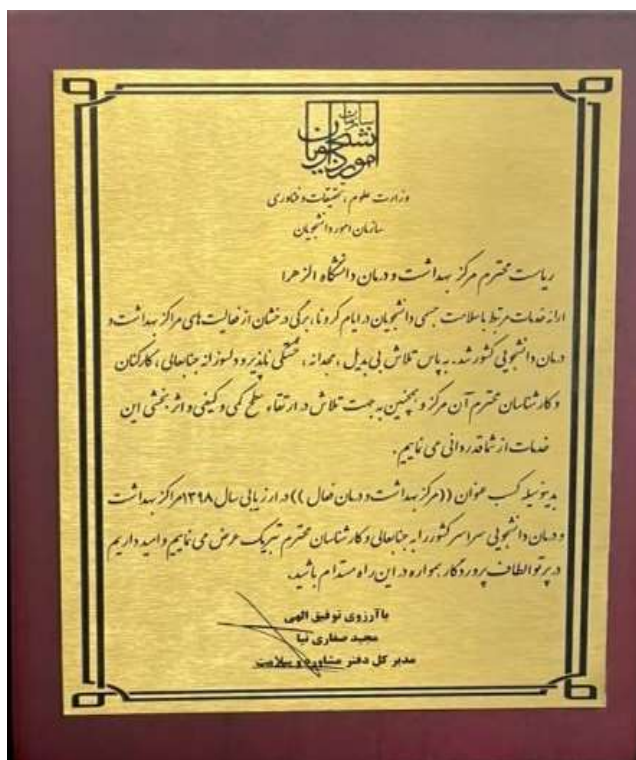 سازمان
امور دانشجویان
وزارت علوم، تحقیقات و فناوری
سازمان امور دانشجویان
ریاست محترم مرکز بهداشت و درمان دانشگاه الزهرا
ارائه خدمات مرتبط با سلامت جسمی دانشجویان در ایام کرونا، برگی درخشان از فعالیت های مراکز بهداشت و
درمان دانشجویی کشور شد. به پاس تلاش بی بدیل، مجدانه، خستگی ناپذیر و دلسوزانه جنابعالی، کارکنان
و کارشناسان محترم آن مرکز و همچنین به جهت تلاش در ارتقاء سطح کمی و کیفی و اثر بخشی این
خدمات از شما قدردانی می نماییم.
بدینوسیله کسب عنوان ((مرکز بهداشت و درمان فعال)) در ارزیابی سال ۱۳۹۸ مراکز بهداشت
و درمان دانشجویی سراسر کشور را به جنابعالی و کارشناسان محترم تبریک عرض می نماییم و امید داریم
در پرتو الطاف پروردگار همواره در این راه مستدام باشید.
با آرزوی توفیق الهی
مجید صفاری نیا
مدیر کل دفتر مشاوره و سلامت